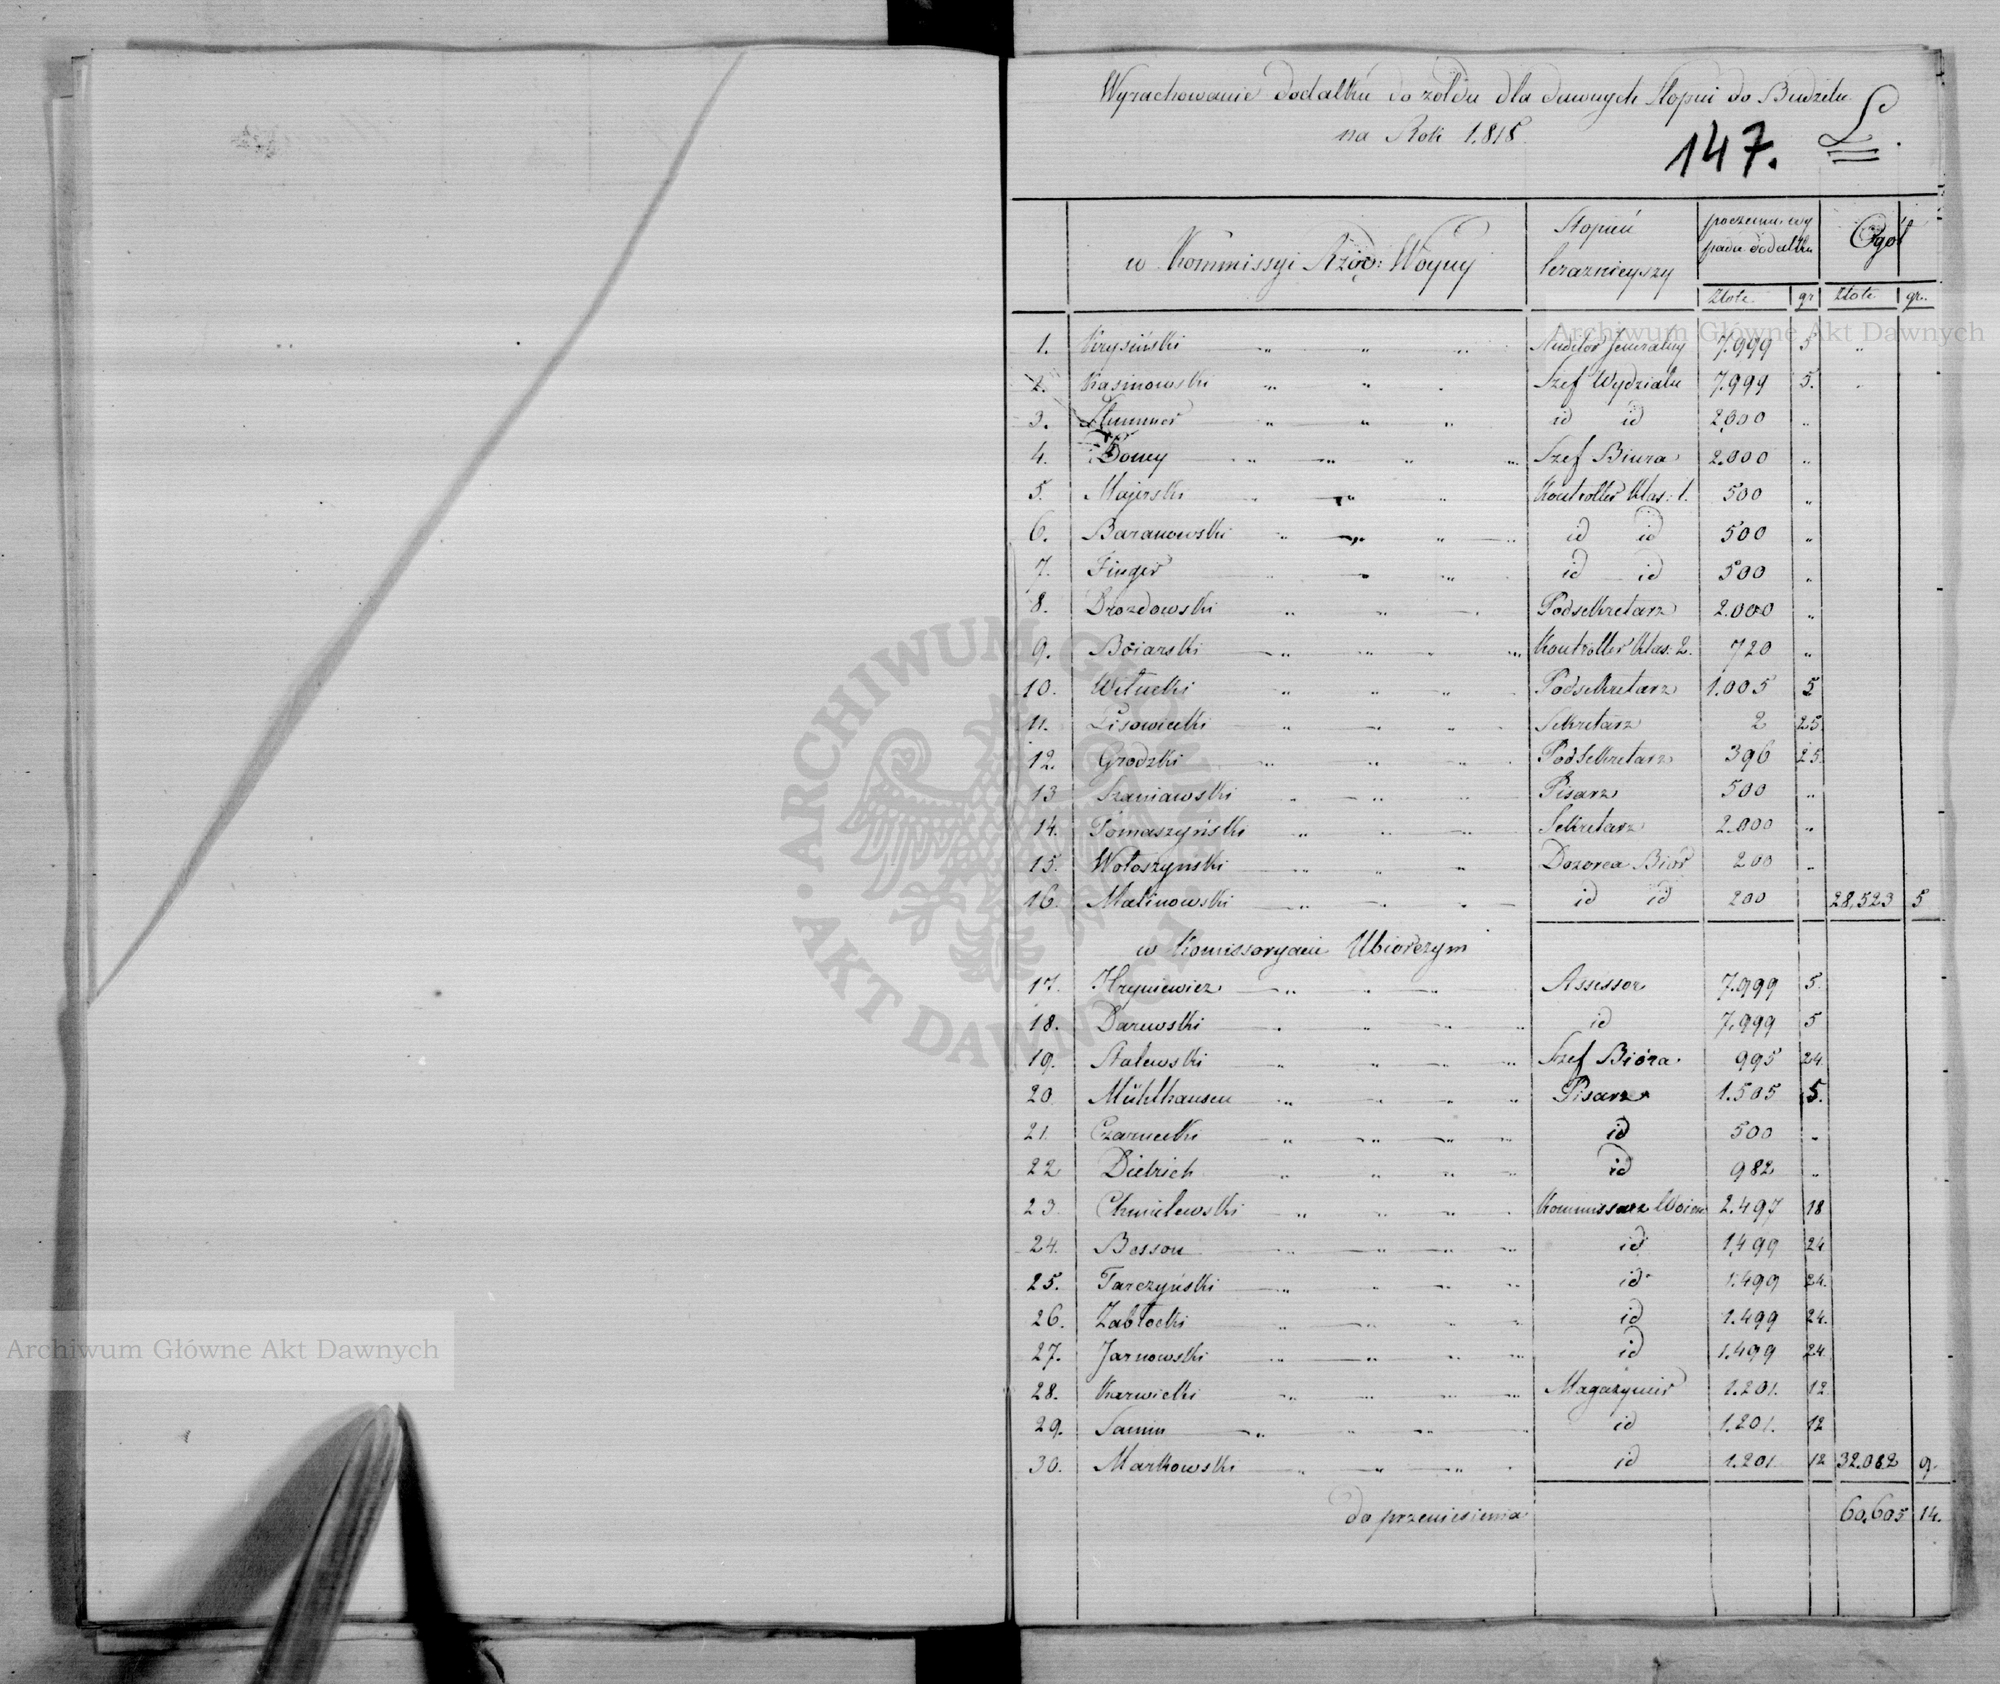 Wyrachowanie dodatku do żołdu dla dawnych Stopni do Budżetu
na Rok 1.818.
147. L.
w Kommissyi Rząd: Woyny Stopień teraznieyszy poczemu wypada dodatku Ogół
złote gr złote gr.
Archiwum Główne Akt Dawnych
1. Krysiński Auditor Jeneralny 7.999 5
2. Kasinowski Szef Wydziału 7.999 5.
3. Stummer id id 2,000 "
4. Doney Szef Biura 2.000 "
5. Majerski Kontroller Klas: 1. 500 "
6. Baranowski id id 500 "
7. Finger id id 500 "
8. Drozdowski Podsekretarz 2.000 "
9. Boiarski Kontroller Klas: 2. 720 "
10. Witucki Podsekretarz 1.005 5
11. Lisowiecki Sekretarz 2 25
12. Grodzki PodSekretarz 396 25
13 Szaniawski Pisarz 500 "
14. Tomaszyński Sekretarz 2.000 "
15. Wołoszynski Dozorca Biór 200 "
16. Malinowski id id 200 28,523 5
w Komissoryacie Ubiorczym
17. Hryniewicz Assessor 7.999 5.
18. Darewski id 7.999 5
19. Stalewski Szef Bióra 995 24
20 Mühlhausen Pisarz 1.505 5.
21. Czarnecki id 500 "
22 Dietrich id 982 "
23. Chmielewski Kommissarz Woien 2.497 18
24. Bosson id 1,499 24
25. Tarczyński id 1.499 24.
26. Zabłocki id 1.499 24.
27. Jarnowski id 1.499 24
28. Karwicki Magazynier 1.201. 12
29. Samin id 1.201. 12
30. Markowski id 1.201 12 32.082 9.
do przeniesienia 60,605 14.
ARCHIWUM GŁÓWNE AKT DAWNYCH
Archiwum Główne Akt Dawnych